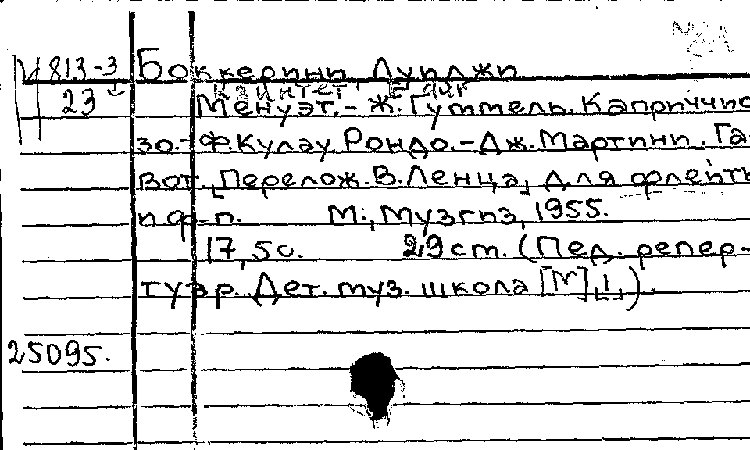 И 813-3 Боккерини Луиджи
23 Квинтет
Менуэт.- Ж.Гуммель. Каприччио
зо.- Ф.Кулау. Рондо.- Дж.Мартини. Га-
вот. [Перелож. В.Ленца, для флейты
и ф-п. М., Музгиз, 1955.
17,5с. 29 см. (Пед. репер-
туар. Дет. муз. школа [М],1,).
25095.